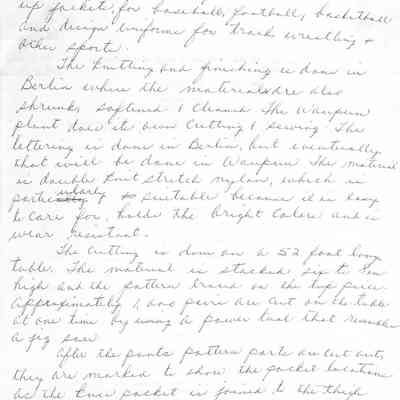 up jackets for baseball, football, basketball
and design uniforms for track wrestling +
other sports.
The Knitting and finishing is done in
Berlin where the materials are also
shrunk, softined & cleaned. The Waupun
plant does its own Cutting & sewing. The
lettering is done in Berlin, but eventually
that will be done in Waupun. The material
is double knit stretch nylon, which is
particularly suitable because it is easy
to care for, holds the bright Colors and is
wear resistant.
The Cutting is done on a 52 foot long
table. The material is stacked six to ten
high and the pattern traced on the top piece.
Approximately 1,000 peices are cut on the table
at one time by using a power tool that resembles
a jig saw.
After the pants pattern parts are cut out,
they are marked to show the pocket locations
as the knee pocket is joined to the thigh